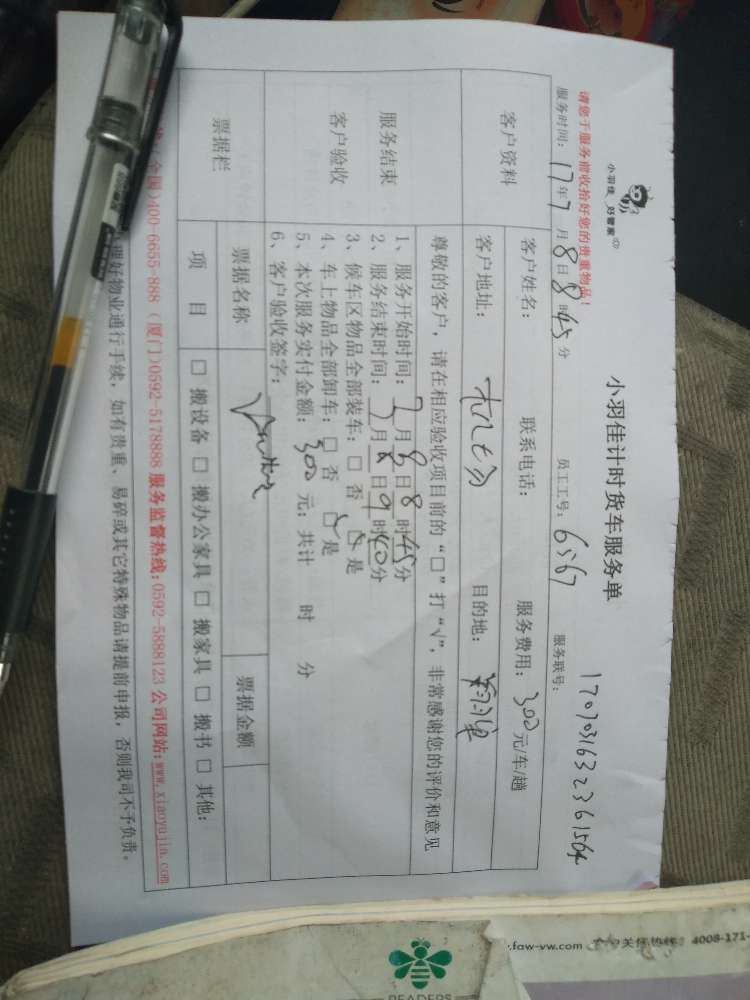 小羽佳 好管家
小羽佳计时货车服务单
请您于服务前收拾好您的贵重物品!
服务时间: 17年7月8日8时45分
员工工号: 6567
服务联号: 1707031632361564
客户资料
客户姓名:
联系电话:
服务费用: 300元/车/趟
客户地址:
目的地:
服务结束
客户验收
尊敬的客户,请在相应验收项目前的“□”打“√”,非常感谢您的评价和意见
1、服务开始时间: 7月8日8时45分
2、服务结束时间: 7月8日9时40分
3、候车区物品全部装车: □ 否 ☑ 是
4、车上物品全部卸车: □ 否 ☑ 是
5、本次服务实付金额: 300元; 共计 时 分
6、客户验收签字:
票据栏
票据名称
票据金额
项 目
□ 搬设备 □ 搬办公家具 □ 搬家具 □ 搬书 □ 其他:
全国)400-6655-888 (厦门)0592-5178888 服务监督热线:0592-5888123 公司网站:www.xiaoyujia.com
理好物业通行手续,如有贵重、易碎或其它特殊物品请提前申报,否则我司不予负责。
.faw-vw.com
关怀热线: 4008-171-
READERS